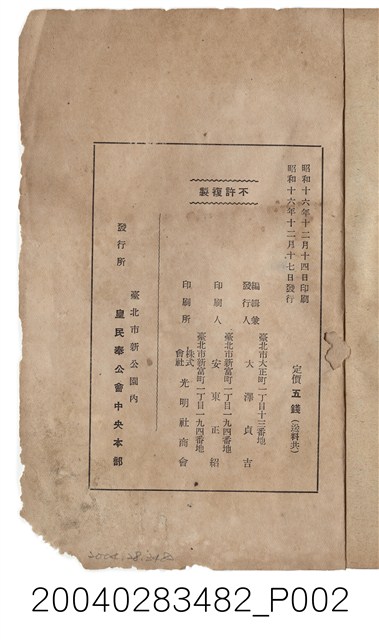 昭和十六年十二月十四日印刷
昭和十六年十二月十七日發行
定價五錢（送料共）
不許複製
臺北市大正町一丁目十三番地
編輯兼
發行人 大澤貞吉
臺北市新富町一丁目一九四番地
印刷人 安東正紹
臺北市新富町一丁目一九四番地
印刷所 株式會社 光明社商會
臺北市新公園內
發行所 皇民奉公會中央本部
20040283482_P002